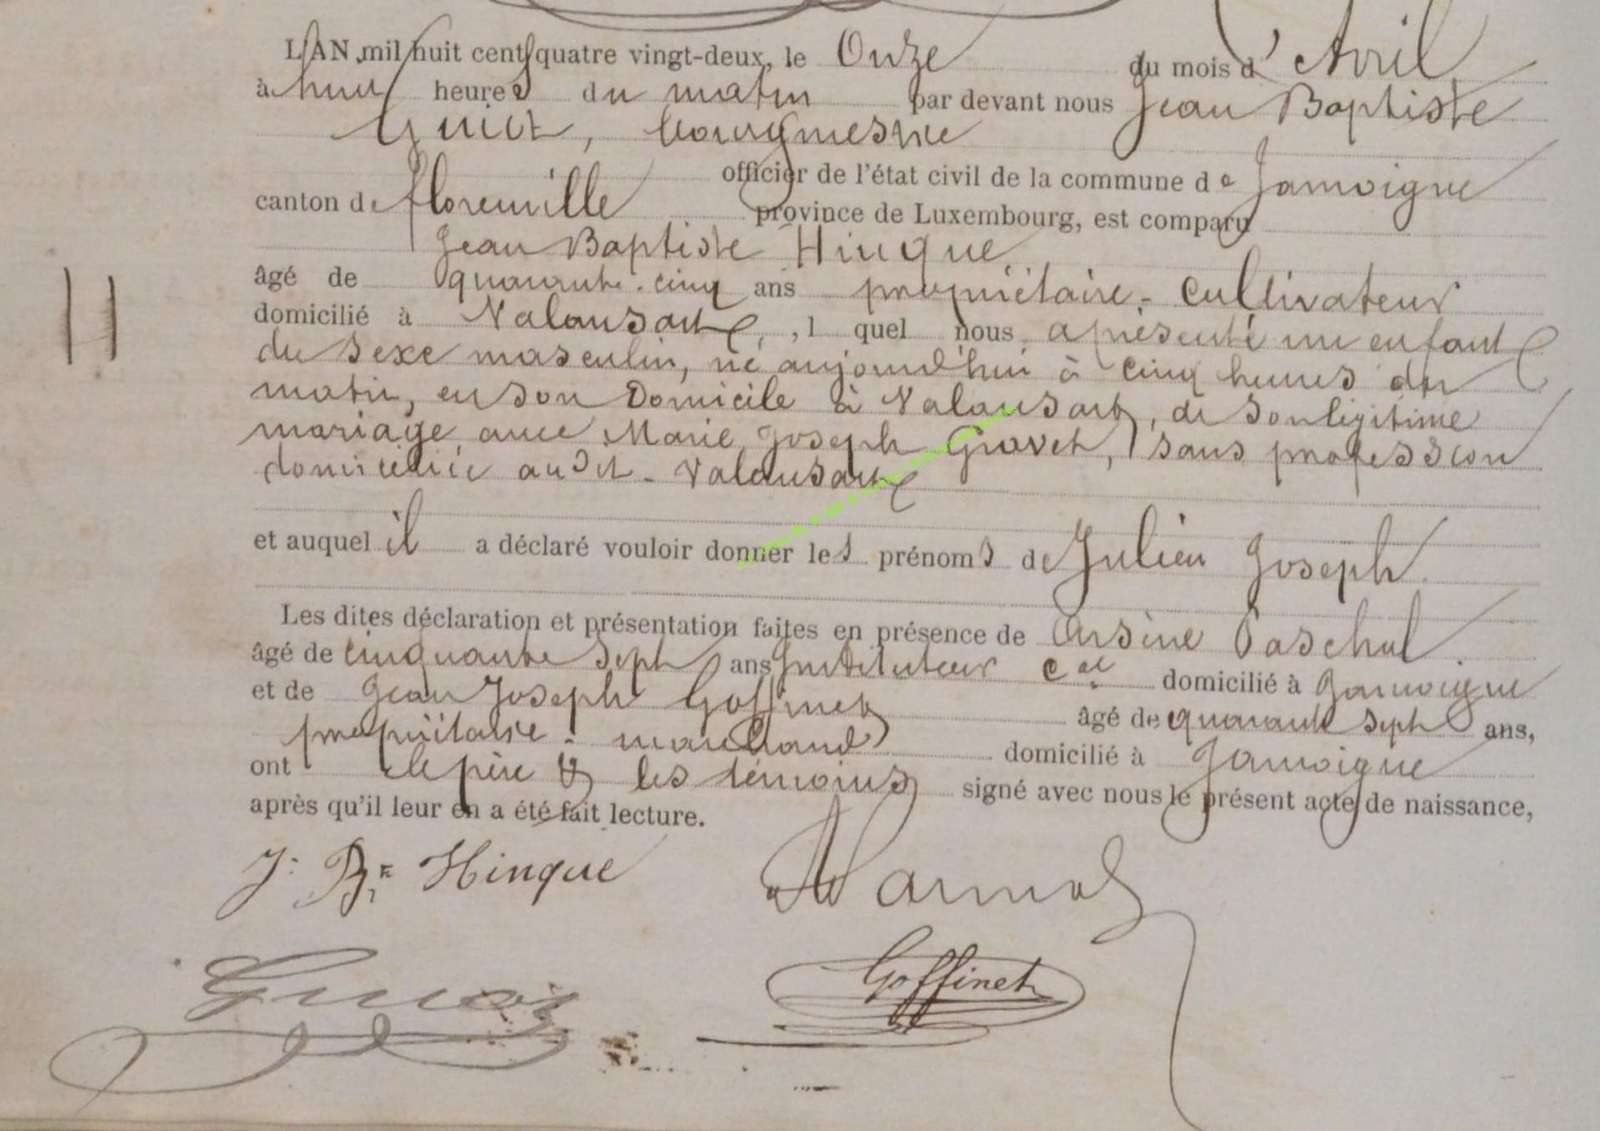 L'AN mil huit cent quatre vingt-deux, le Onze du mois d'Avril
à huit heures du matin par devant nous Jean Baptiste
bourgmestre
officier de l'état civil de la commune de Jamoigne
canton de florenville province de Luxembourg, est comparu
Jean Baptiste Hinque
âgé de quarante-cinq ans propriétaire-cultivateur
domicilié à Valansart, lequel nous a présenté un enfant
du sexe masculin, né aujourd'hui à cinq heures du
matin, en son Domicile à Valansart, de son légitime
mariage avec Marie Joseph Gravet, sans profession
domiciliée audit Valansart
et auquel il a déclaré vouloir donner les prénoms de Julien Joseph.
Les dites déclaration et présentation faites en présence de Arsène Paschal
âgé de cinquante sept ans Instituteur cal domicilié à Jamoigne
et de Jean Joseph Goffinet âgé de quarante sept ans,
propriétaire-marchand domicilié à Jamoigne
ont le père & les témoins signé avec nous le présent acte de naissance,
après qu'il leur en a été fait lecture.
J. Bte Hinque
Goffinet